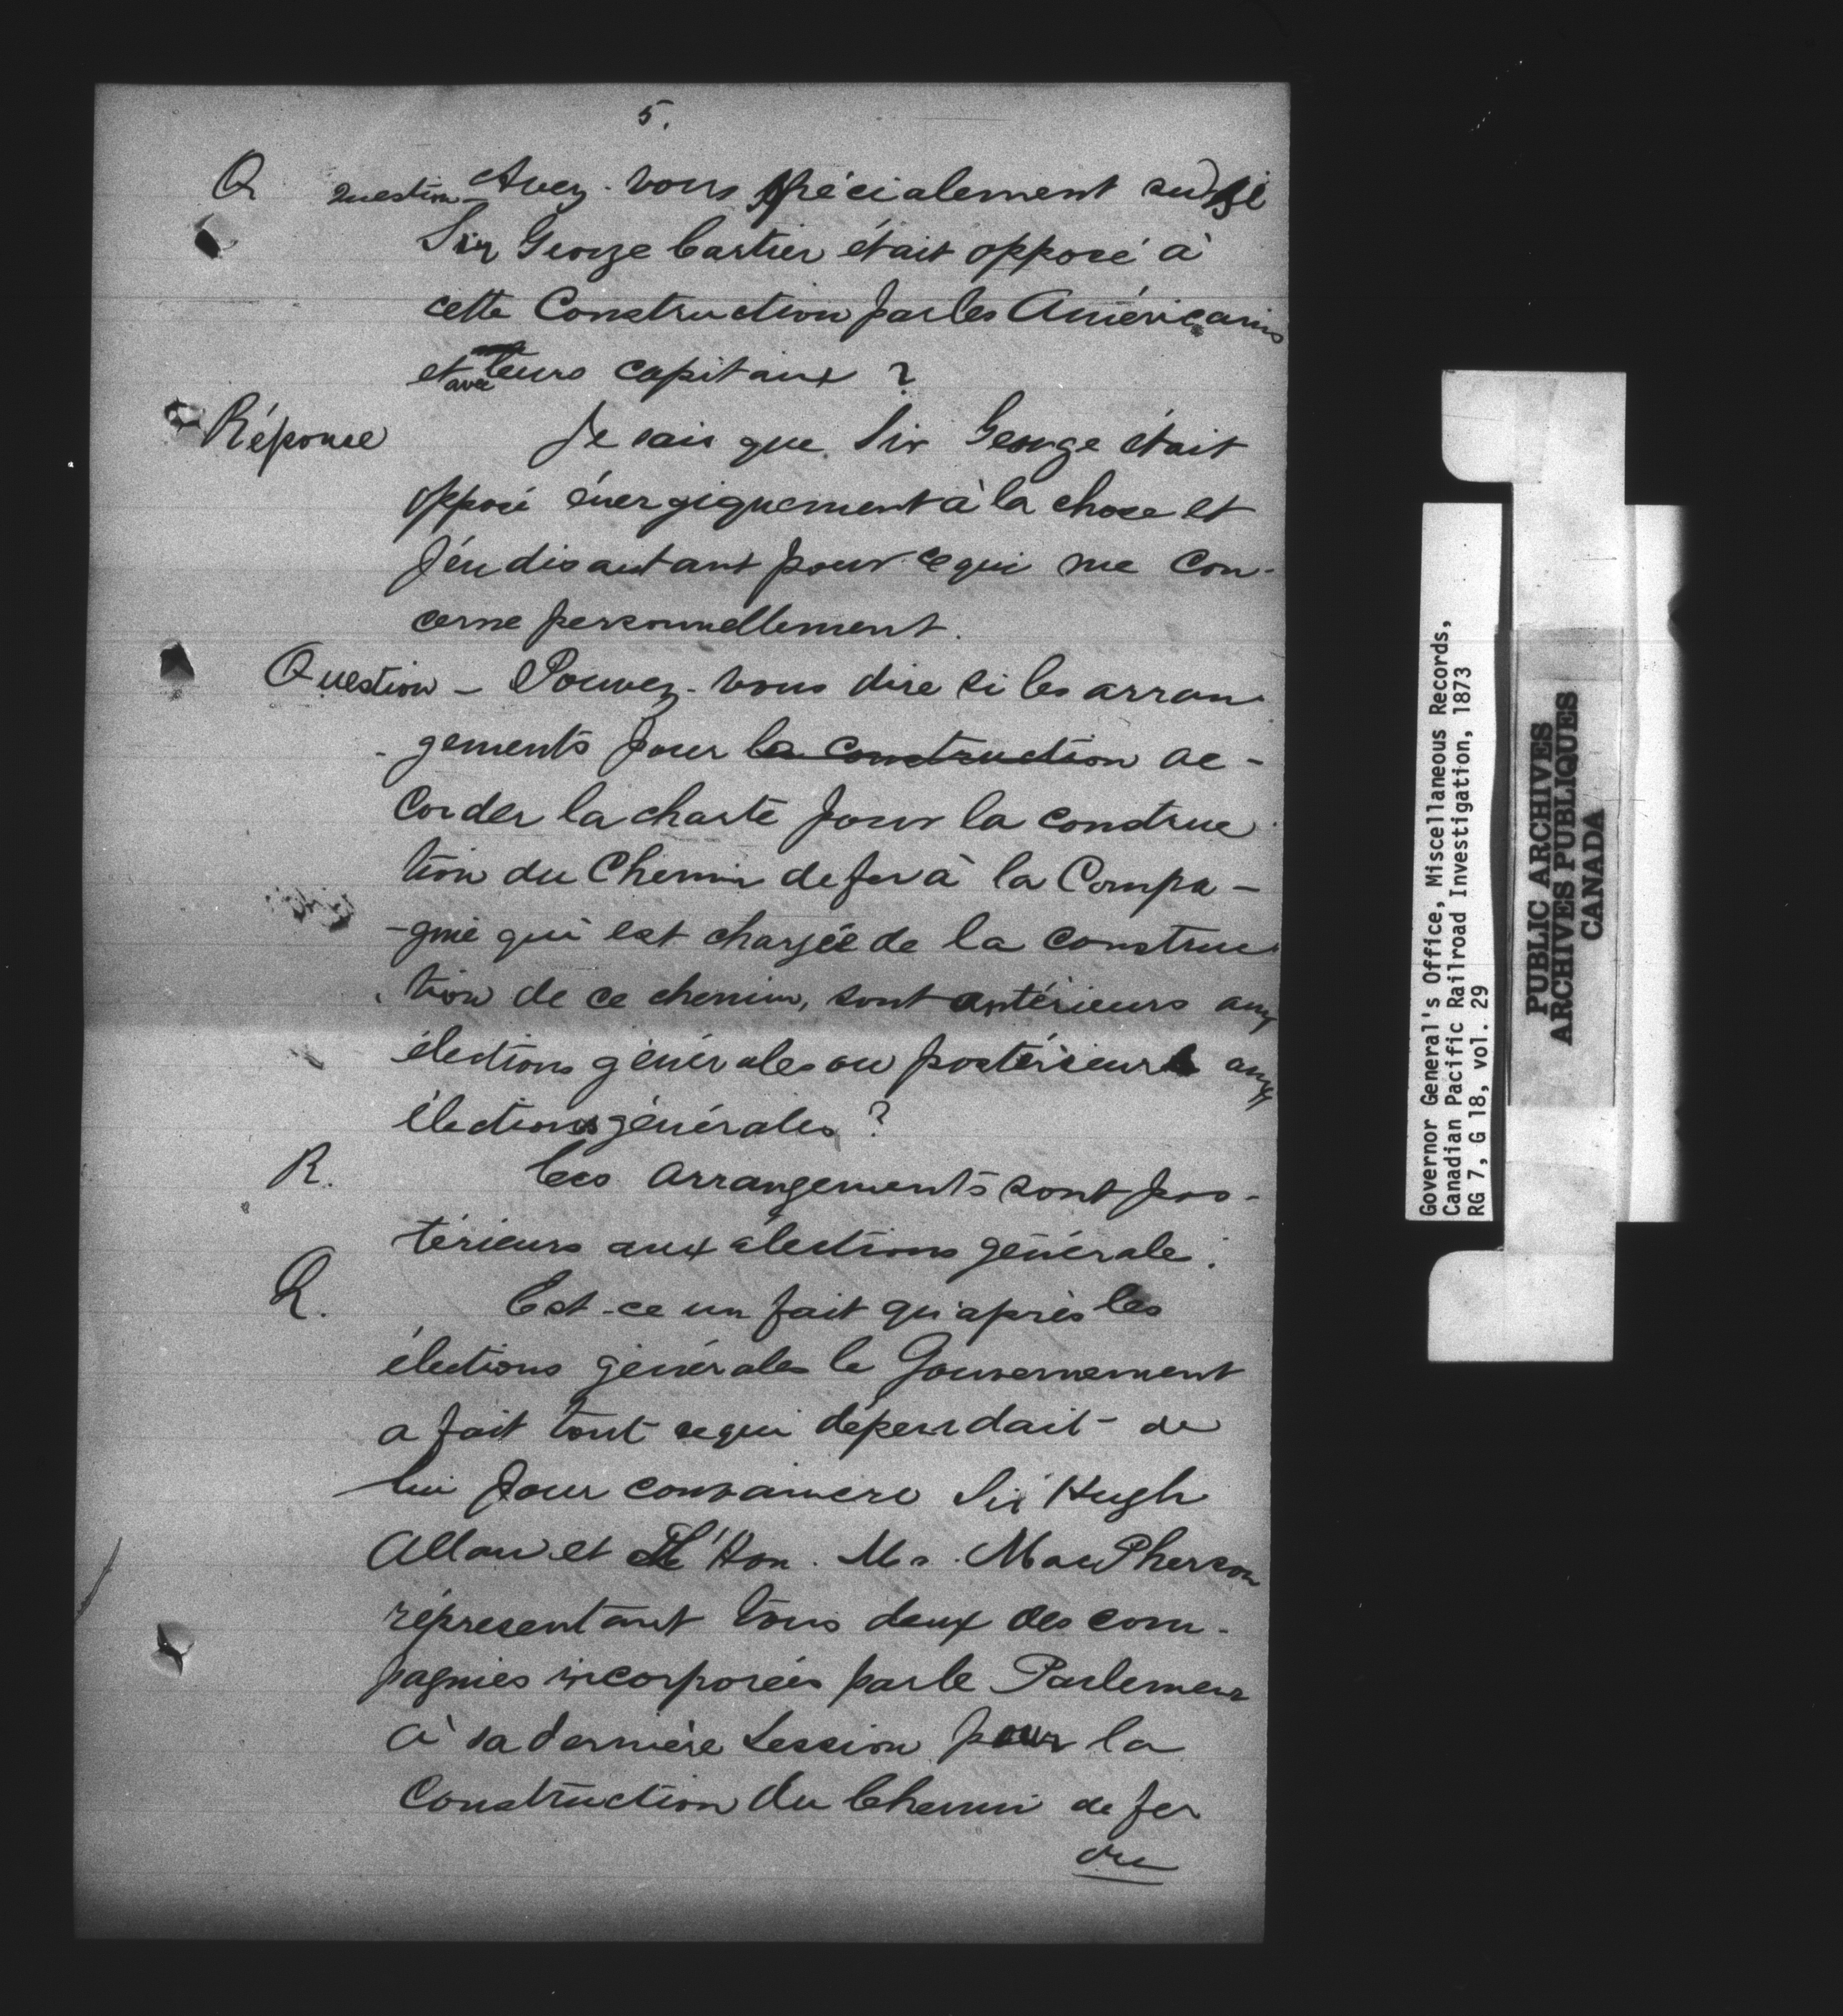 5.
Q Question - Avez-vous spécialement su si
Sir George Cartier était opposé à
cette Construction par les Américains
et avec leurs capitaux ?
Réponse Je sais que Sir George était
opposé énergiquement à la chose et
j'en dis autant pour ce qui me con-
cerne personnellement.
Question - Pouvez-vous dire si les arran
-gements pour la construction ac-
corder la charte pour la construc
tion du Chemin de fer à la Compa-
-gnie qui est chargée de la construc
tion de ce chemin, sont antérieurs aux
élections générales ou postérieurs aux
élections générales ?
R. Ces arrangements sont pos-
térieurs aux élections générale.
Q. Est-ce un fait qu'après les
élections générales le Gouvernement
a fait tout ce qui dépendait de
lui pour convaincre Sir Hugh
Allan et L'Hon. Mr. MacPherson
répresentant tous deux des com-
pagnies incorporées par le Parlement
à sa dernière Session pour la
Construction du Chemin de fer
du
Governor General's Office, Miscellaneous Records,
Canadian Pacific Railroad Investigation, 1873
RG 7, G 18, vol. 29
PUBLIC ARCHIVES
ARCHIVES PUBLIQUES
CANADA